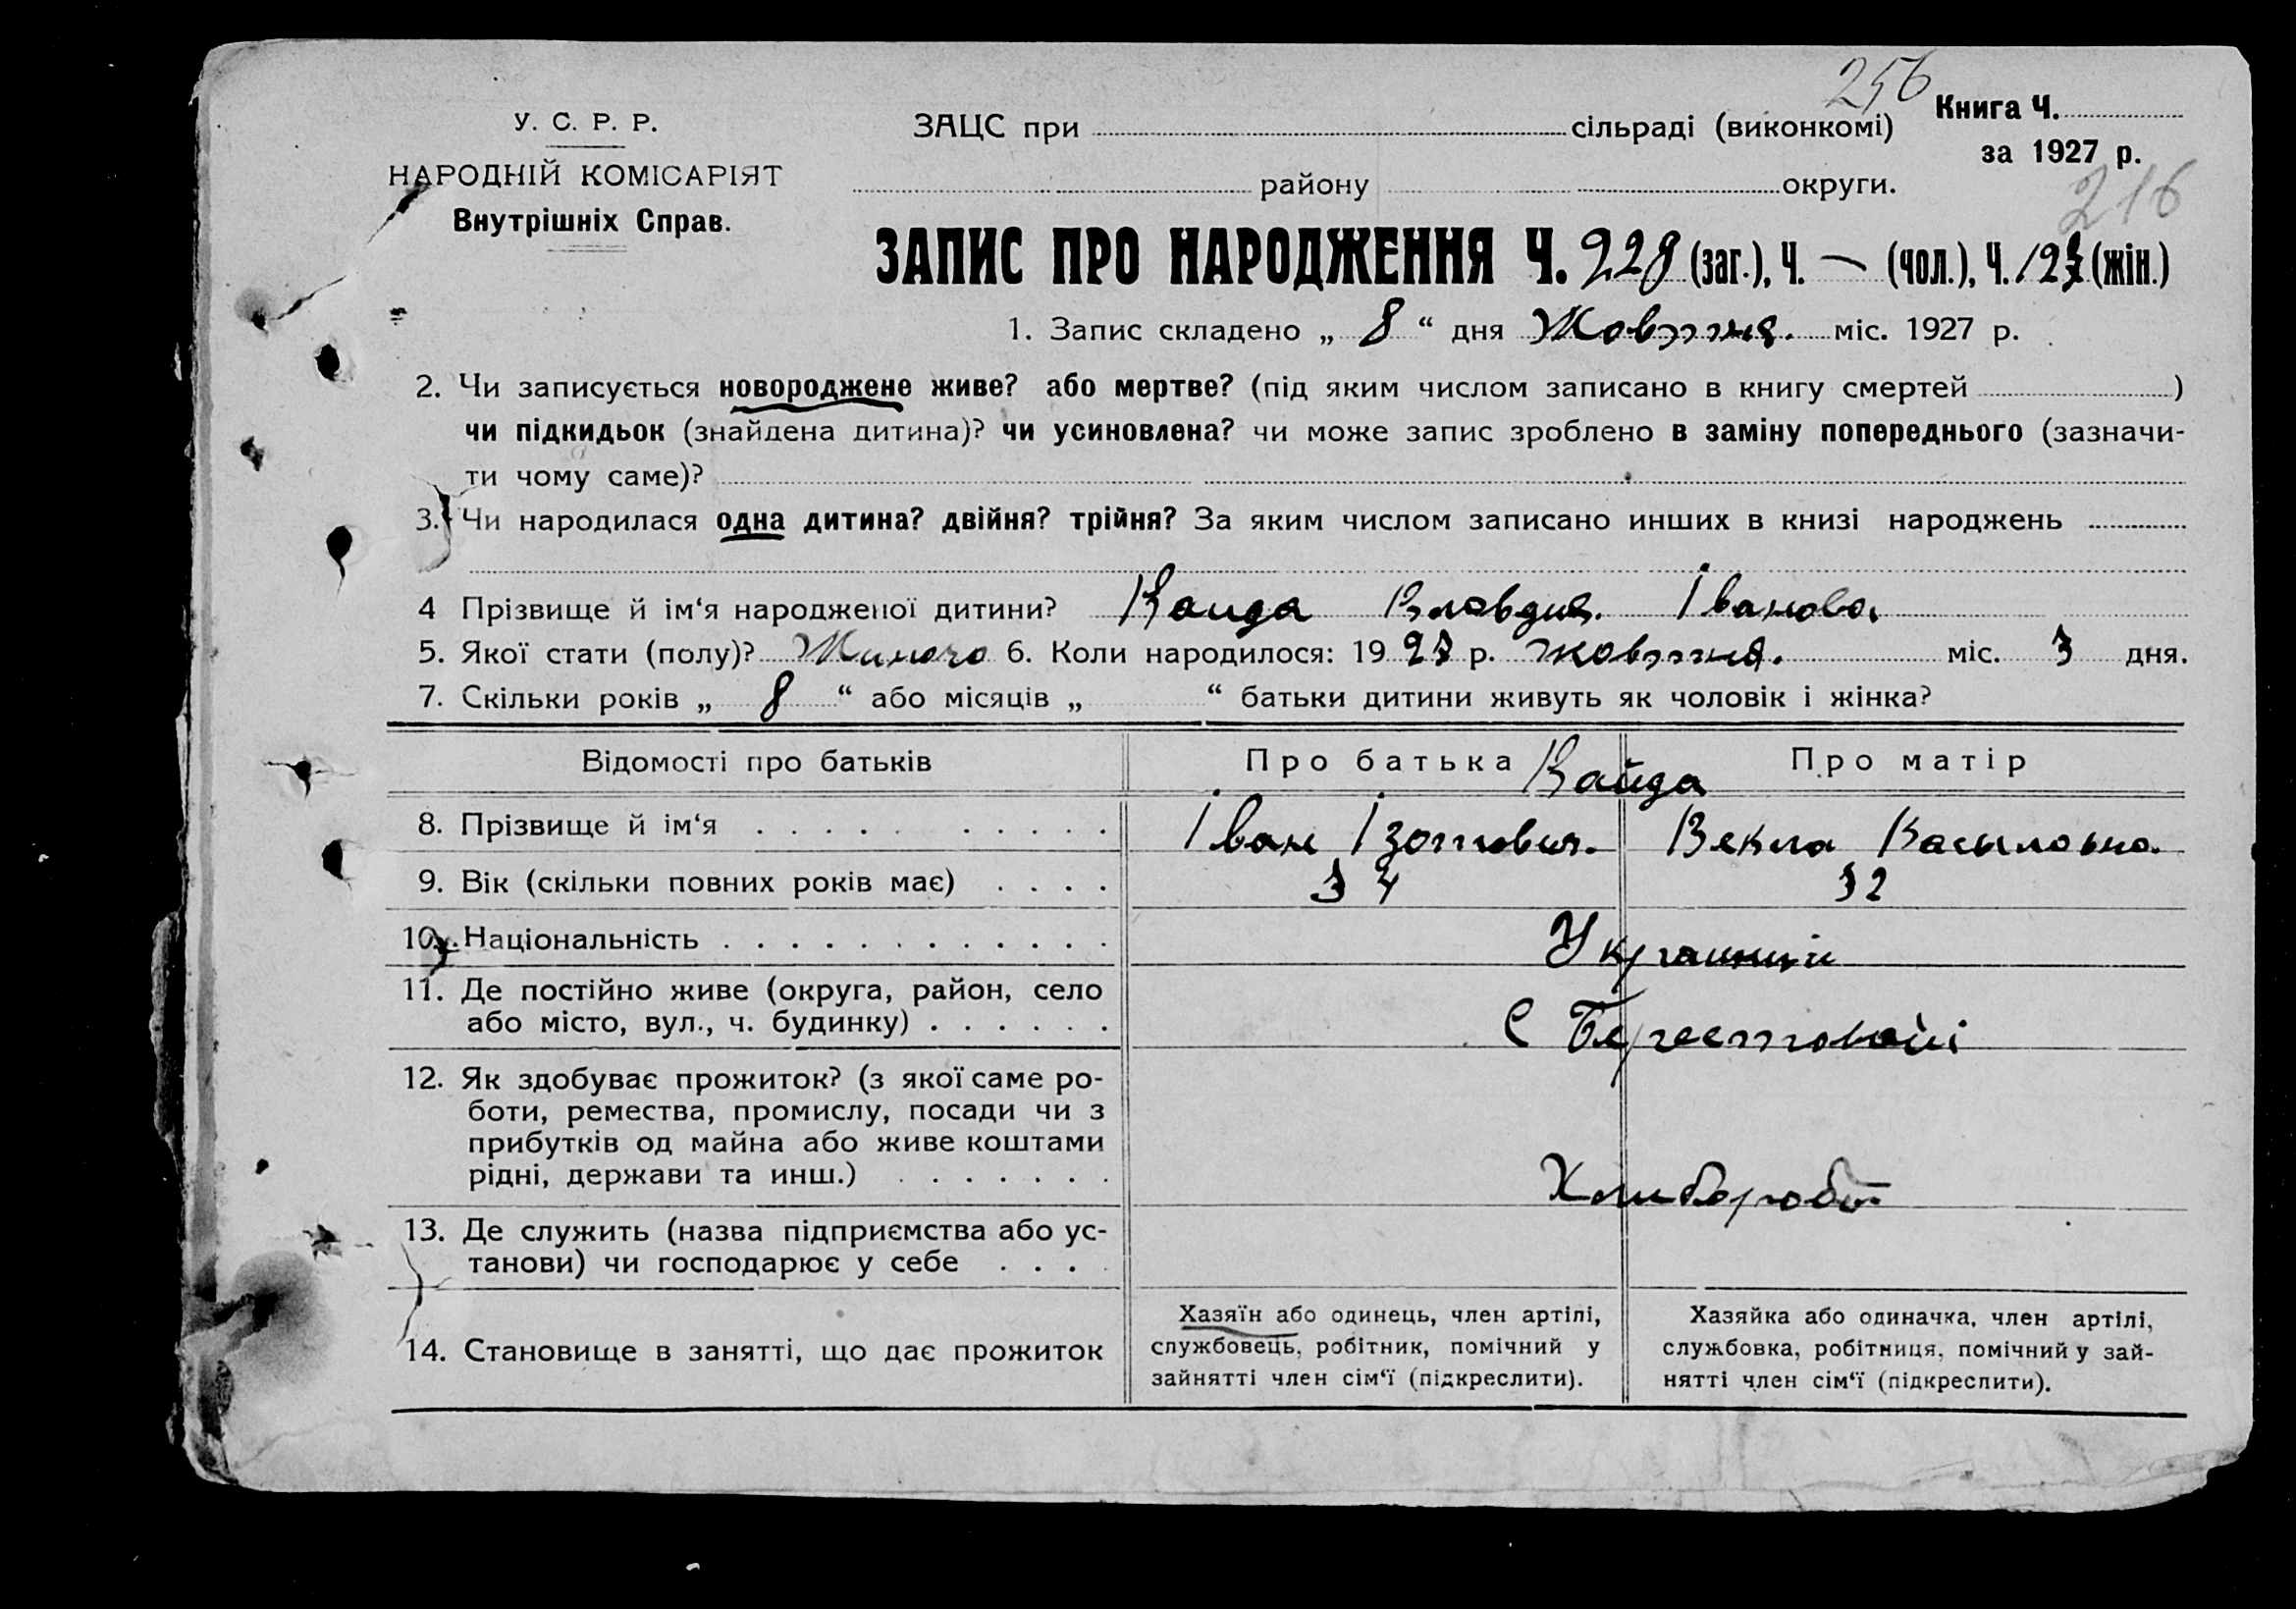 256
У. С. Р. Р.
НАРОДНІЙ КОМІСАРІЯТ
Внутрішніх Справ.
ЗАЦС при сільраді (виконкомі)
Книга Ч.
за 1927 р.
району округи.
216
ЗАПИС ПРО НАРОДЖЕННЯ Ч. 228 (заг.), Ч. — (чол.), Ч. 123 (жін.)
1. Запис складено „ 8 “ дня Жовтня. міс. 1927 р.
2. Чи записується новороджене живе? або мертве? (під яким числом записано в книгу смертей )
чи підкидьок (знайдена дитина)? чи усиновлена? чи може запис зроблено в заміну попереднього (зазначи-
ти чому саме)?
3. Чи народилася одна дитина? двійня? трійня? За яким числом записано инших в книзі народжень
4 Прізвище й ім‘я народженої дитини? Вайда Явдня. Іванова
5. Якої стати (полу)? Жиночо 6. Коли народилося: 1927 р. жовтня. міс. 3 дня.
7. Скільки років „ 8 “ або місяців „ “ батьки дитини живуть як чоловік і жінка?
Відомості про батьків
Про батька
Вайда
Про матір
8. Прізвище й ім‘я Іван Ізотович. Векла Васыловна.
9. Вік (скільки повних років має) 34 32
10. Національність Украинци
11. Де постійно живе (округа, район, село
або місто, вул., ч. будинку) С Берестовойі
12. Як здобуває прожиток? (з якої саме ро-
боти, ремества, промислу, посади чи з
прибутків од майна або живе коштами
рідні, держави та инш.) Хлибороби
13. Де служить (назва підприємства або ус-
танови) чи господарює у себе
14. Становище в занятті, що дає прожиток
Хазяїн або одинець, член артілі,
службовець, робітник, помічний у
зайнятті член сім‘ї (підкреслити).
Хазяйка або одиначка, член артілі,
службовка, робітниця, помічний у зай-
нятті член сім‘ї (підкреслити).